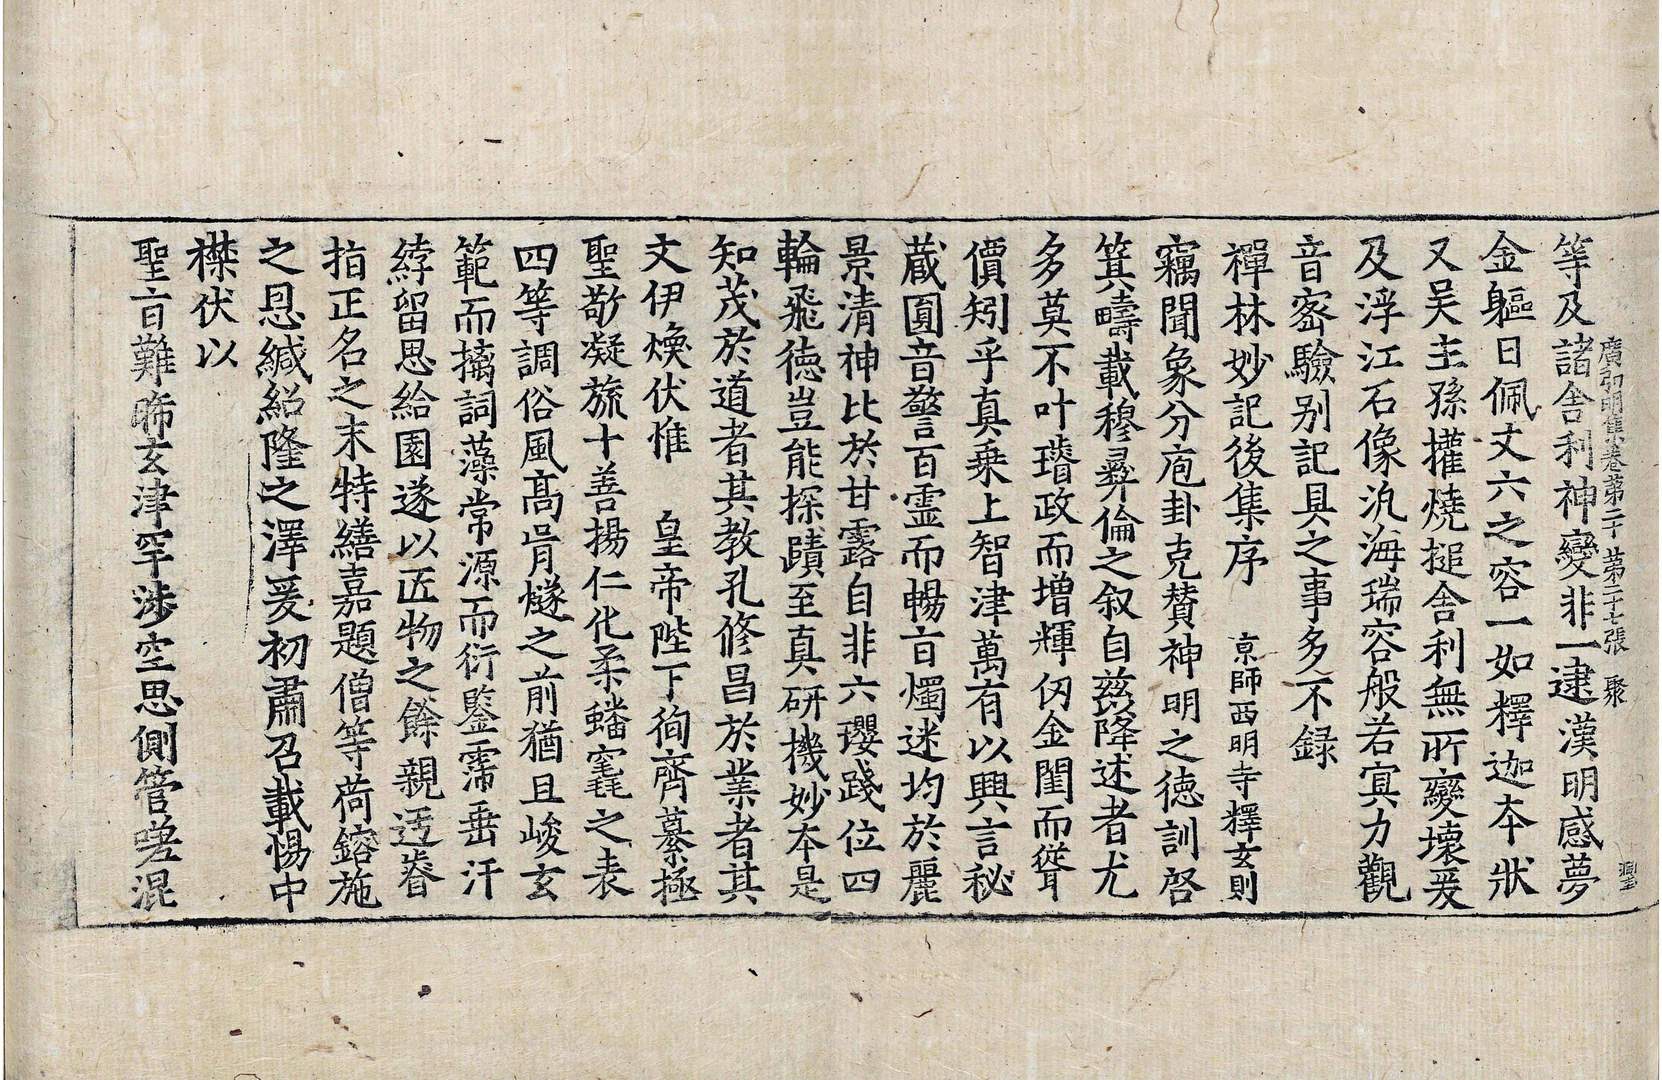 廣弘明集卷第二十 第二十七張 聚
等及諸舍利神變非一逮漢明感夢
金軀日佩丈六之容一如釋迦本狀
又吴主孫權燒搥舍利無所變壞爰
及浮江石像汎海瑞容般若㝠力觀
音密驗别記具之事多不録
禪林妙記後集序 京師西明寺釋玄則
竊聞象分庖卦克賛神明之德訓啓
箕疇載穆彛倫之叙自兹降述者尤
多莫不叶璿政而增輝仭金閨而聳
價矧乎真乗上智津萬有以興言秘
蔵圓音警百霊而暢旨燭迷均於麗
景清神比於甘露自非六瓔踐位四
輪飛德豈能探賾至真研機妙本是
知茂於道者其教孔修昌於業者其
文伊煥伏惟 皇帝陛下徇齊纂極
聖敬凝旒十善揚仁化柔蟠窀之表
四等調俗風髙肯燧之前猶且峻玄
範而摛詞藻常源而衍鑒霈垂汗
綍留思給園遂以匠物之餘親迂眷
指正名之末特繕嘉題僧等荷鎔施
之恩緘紹隆之澤爰初肅召載惕中
襟伏以
聖旨難晞玄津罕涉空思側管嗟混